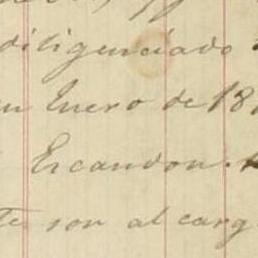 diligenciado
en Enero de 18
Escandon.
te son al carg